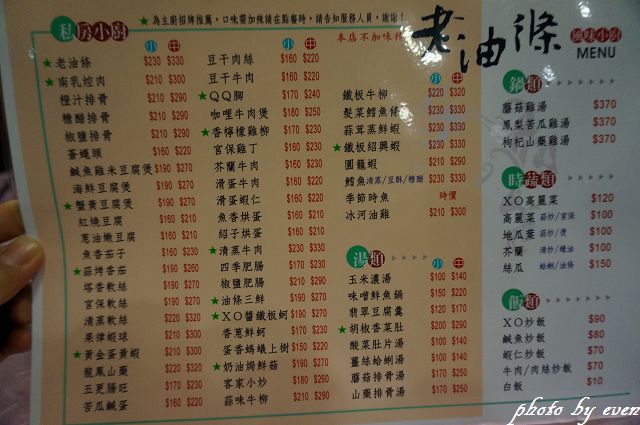 ★為主廚招牌推薦，口味需加辣請在點餐時，請告知服務人員，謝謝！
本店不加味精
老油條
風味小廚
MENU
私房小廚
小 中
★老油條 $230 $330
★南乳控肉 $210 $290
橙汁排骨 $210 $290
糖醋排骨 $210 $290
椒鹽排骨 $210 $290
蒼蠅頭 $160 $240
鹹魚雞米豆腐煲 $190 $270
海鮮豆腐煲 $190 $270
★蟹黃豆腐煲 $190 $270
紅燒豆腐 $160 $210
蔥油嫩豆腐 $160 $210
魚香茄子 $160 $230
★蒜烤香茄 $190 $260
塔香軟絲 $190 $260
宮保軟絲 $190 $260
清蒸軟絲 $220 $320
果律蝦球 $210 $310
★黃金蛋黃蝦 $210 $310
龍鳳山藥 $220 $320
五更腸旺 $210 $310
苦瓜鹹蛋 $160 $210
小 中
豆干肉絲 $160 $220
豆干牛肉 $160 $220
★QQ腳 $170 $230
咖哩牛肉煲 $210 $300
★香檸檬雞柳 $170 $230
宮保雞丁 $160 $240
芥蘭牛肉 $160 $230
滑蛋牛肉 $160 $230
滑蛋蝦仁 $160 $230
魚香烘蛋 $160 $210
紹子烘蛋 $160 $210
★清蒸牛肉 $230 $330
四季肥腸 $210 $310
椒鹽肥腸 $210 $310
★油條三鮮 $190 $260
★XO醬鐵板蚵 $190 $260
香蔥鮮蚵 $170 $230
蛋香螞蟻上樹 $150 $190
★奶油焗鮮菇 $190 $260
客家小炒 $160 $230
蒜味牛柳 $210 $290
小 中
鐵板牛柳 $220 $320
髮菜鱈魚條 $210 $310
蒜茸蒸鮮蝦 $210 $310
★鐵板紹興蝦 $230 $330
圓籠蝦 $210 $310
鱈魚 清蒸/豆酥/糖醋 $230 $330
季節時魚 時價
冰河油雞 $210 $300
湯類
小 中
玉米濃湯 $100 $140
味噌鮮魚鍋 $190 $250
翡翠豆腐羹 $170 $220
★胡椒香菜肚 $210 $290
酸菜肚片湯 $170 $250
薑絲蛤蜊湯 $170 $250
蘑菇排骨湯 $170 $250
山藥排骨湯 $170 $250
鍋類
蘑菇雞湯 $370
鳳梨苦瓜雞湯 $370
枸杞山藥雞湯 $370
時蔬類
XO高麗菜 $120
高麗菜 蒜炒/宮保 $100
地瓜葉 蒜炒/燙 $100
芥蘭 清炒/蠔油 $100
絲瓜 蛤蜊/油條 $150
飯類
XO炒飯 $90
鹹魚炒飯 $80
蝦仁炒飯 $70
牛肉/肉絲炒飯 $70
白飯 $10
photo by even